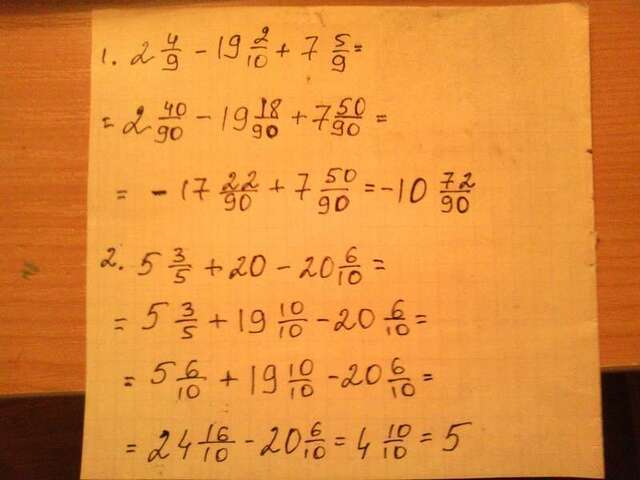 1. 2 4/9 - 19 2/10 + 7 5/9 =
= 2 40/90 - 19 18/90 + 7 50/90 =
= - 17 22/90 + 7 50/90 = -10 72/90
2. 5 3/5 + 20 - 20 6/10 =
= 5 3/5 + 19 10/10 - 20 6/10 =
= 5 6/10 + 19 10/10 - 20 6/10 =
= 24 16/10 - 20 6/10 = 4 10/10 = 5